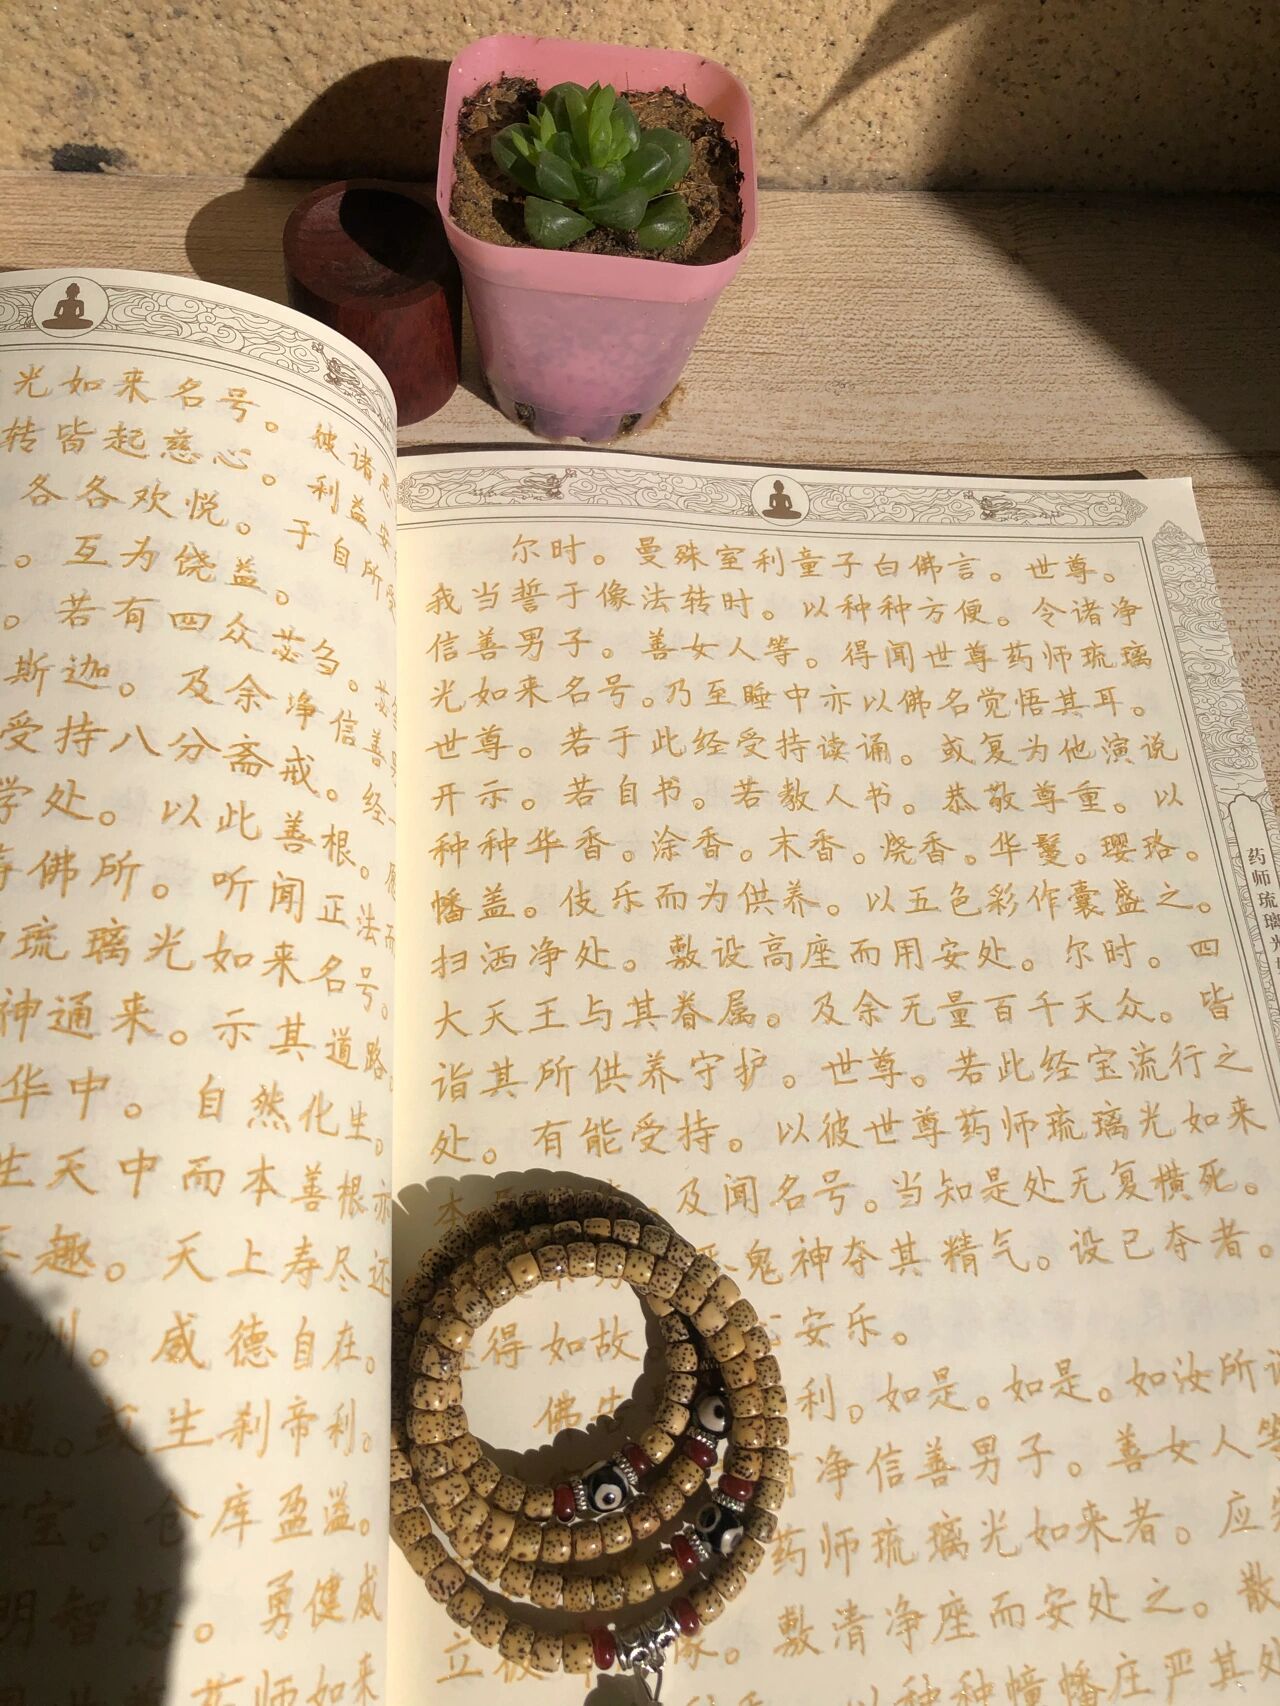 光如来名号。彼诸
转皆起慈心。利益安
各各欢悦。于自所
。互为饶益。
。若有四众苾刍。苾
斯迦。及余净信善
受持八分斋戒。经一
学处。以此善根。愿
佛所。听闻正法而
琉璃光如来名号。
神通来。示其道路。
华中。自然化生。
生天中而本善根亦
趣。天上寿尽还
洲。威德自在。
道。或生刹帝利。
宝。仓库盈溢。
明智慧。勇健威
药师如来
尔时。曼殊室利童子白佛言。世尊。
我当誓于像法转时。以种种方便。令诸净
信善男子。善女人等。得闻世尊药师琉璃
光如来名号。乃至睡中亦以佛名觉悟其耳。
世尊。若于此经受持读诵。或复为他演说
开示。若自书。若教人书。恭敬尊重。以
种种华香。涂香。末香。烧香。华鬘。璎珞。
幡盖。伎乐而为供养。以五色彩作囊盛之。
扫洒净处。敷设高座而用安处。尔时。四
大天王与其眷属。及余无量百千天众。皆
诣其所供养守护。世尊。若此经宝流行之
处。有能受持。以彼世尊药师琉璃光如来
本 及闻名号。当知是处无复横死。
鬼神夺其精气。设已夺者。
得如故 安乐。
佛告 利。如是。如是。如汝所说
净信善男子。善女人等
药师琉璃光如来者。应
立彼 像。敷清净座而安处之。散
以种种幢幡庄严其处
药师琉璃光